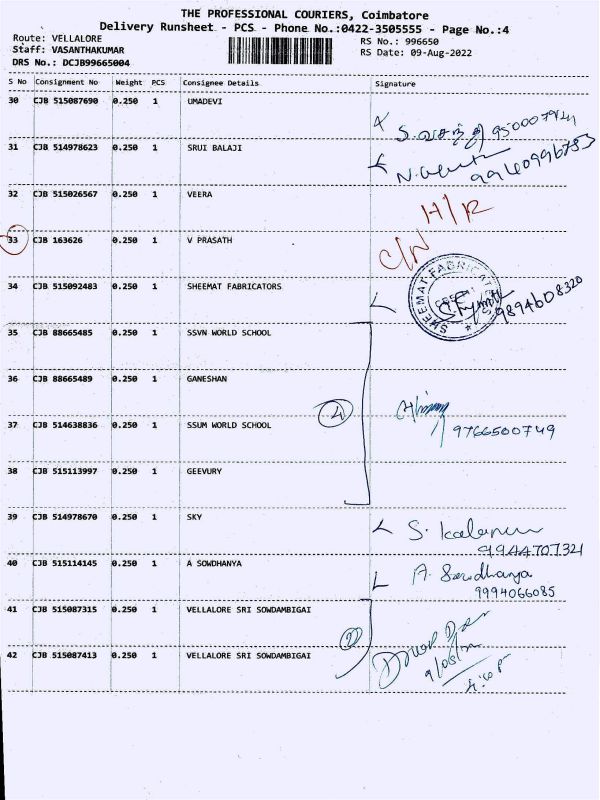 THE PROFESSIONAL COURIERS, Coimbatore
Delivery Runsheet - PCS - Phone No.:0422-3505555 - Page No.:4
Route: VELLALORE RS No.: 996650
Staff: VASANTHAKUMAR RS Date: 09-Aug-2022
DRS No.: DCJB99665004
S No Consignment No Weight PCS Consignee Details Signature
30 CJB 515087690 0.250 1 UMADEVI
S. 
31 CJB 514978623 0.250 1 SRUI BALAJI
N. 9940996753
32 CJB 515026567 0.250 1 VEERA
H/R
33 CJB 163626 0.250 1 V PRASATH
C/N
34 CJB 515092483 0.250 1 SHEEMAT FABRICATORS
SHEEMAT FABRICATORS
9894608320
35 CJB 88665485 0.250 1 SSVN WORLD SCHOOL
36 CJB 88665489 0.250 1 GANESHAN
4
37 CJB 514638836 0.250 1 SSUM WORLD SCHOOL
9766500749
38 CJB 515113997 0.250 1 GEEVURY
39 CJB 514978670 0.250 1 SKY
S.
9944707321
40 CJB 515114145 0.250 1 A SOWDHANYA
A. Sowdhanya
9994066085
41 CJB 515087315 0.250 1 VELLALORE SRI SOWDAMBIGAI
2
42 CJB 515087413 0.250 1 VELLALORE SRI SOWDAMBIGAI